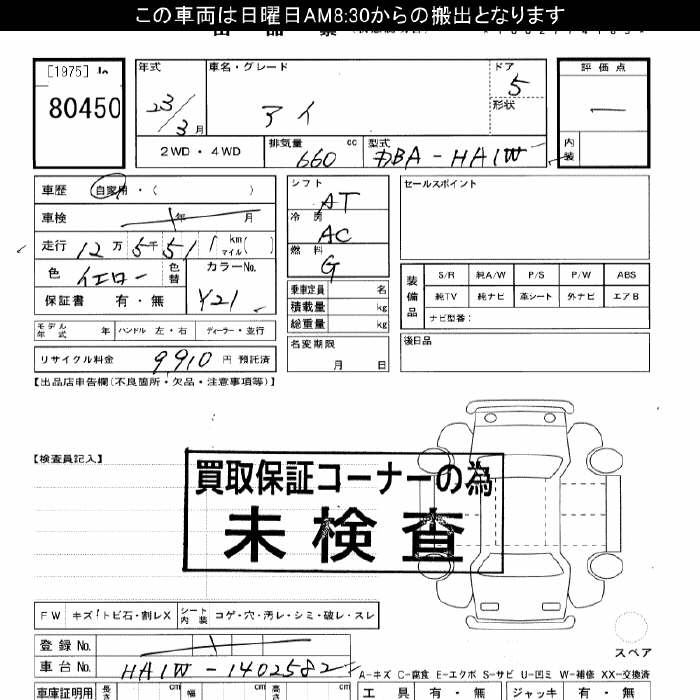 この車両は日曜日AM8:30からの搬出となります
[1975]
80450
年式
23/3月
車名・グレード
アイ
ドア
5
形状
評価点
内装
2WD・4WD
排気量 660 cc
型式 DBA-HA1W
車歴 自家用・( )
車検 年 月
走行 12万5千51 km マイル ( )
色 イエロー 色替
カラーNo. Y21
保証書 有・無
モデル年式 年 ハンドル 左・右 ディーラー・並行
リサイクル料金 9910 円 預託済
シフト AT
冷房 AC
燃料 G
乗車定員 名
積載量 kg
総重量 kg
名変期限 月 日
セールスポイント
装備品
S/R 純A/W P/S P/W ABS
純TV 純ナビ 革シート 外ナビ エアB
ナビ型番:
後日品
【出品店申告欄(不良箇所・欠品・注意事項等)】
【検査員記入】
買取保証コーナーの為
未検査
FW キズ・トビ石・割レX シート内装 コゲ・穴・汚レ・シミ・破レ・スレ
登録No.
車台No. HA1W-1402582
スペア
A-キズ C-腐食 E-エクボ S-サビ U-凹ミ W-補修 XX-交換済
車庫証明用 長さ cm 幅 cm 高さ cm
工具 有・無 ジャッキ 有・無